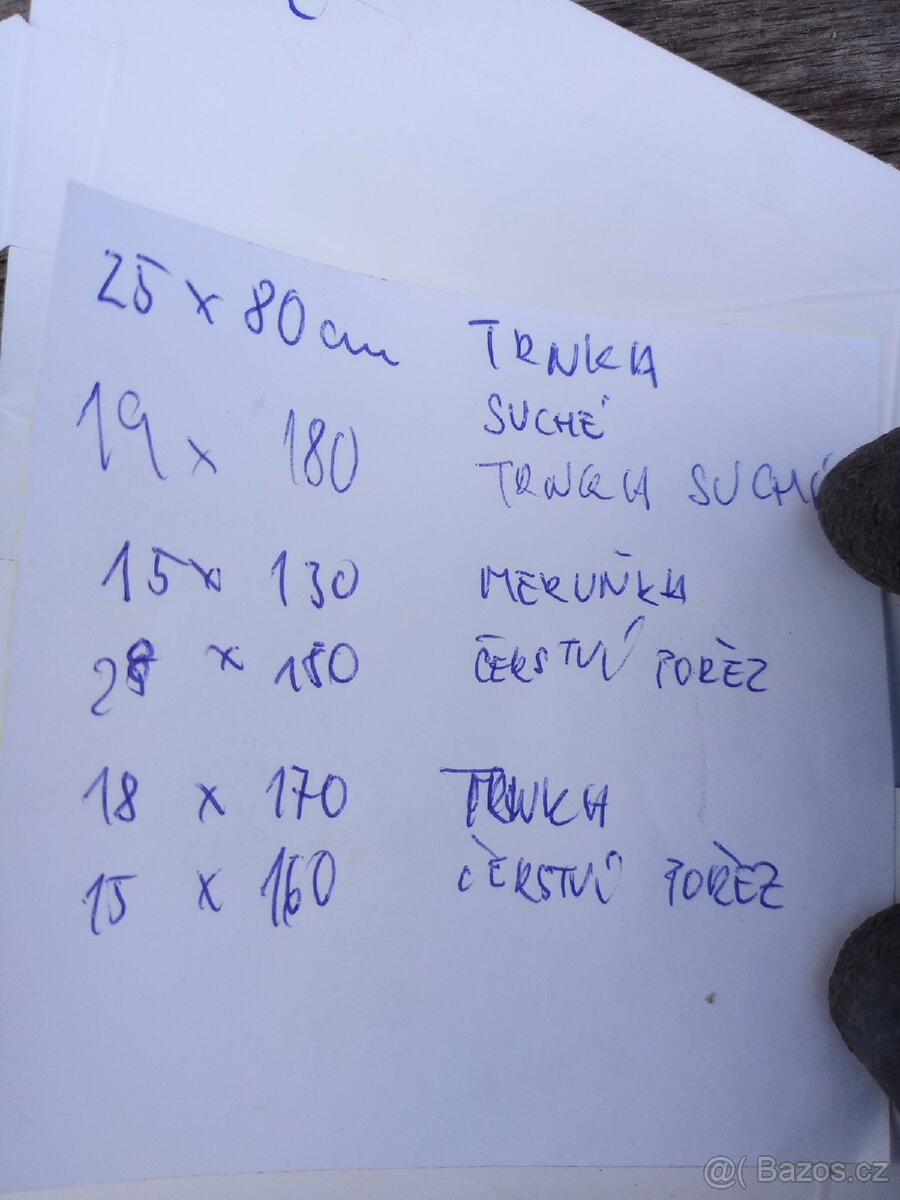 25 x 80 cm TRNKA
SUCHÉ
19 x 180 TRNKA SUCHÉ
15 x 130 MERUŇKA
x 180 ČERSTVÝ POŘEZ
18 x 170 TRNKA
15 x 160 ČERSTVÝ POŘEZ
@( Bazos.cz